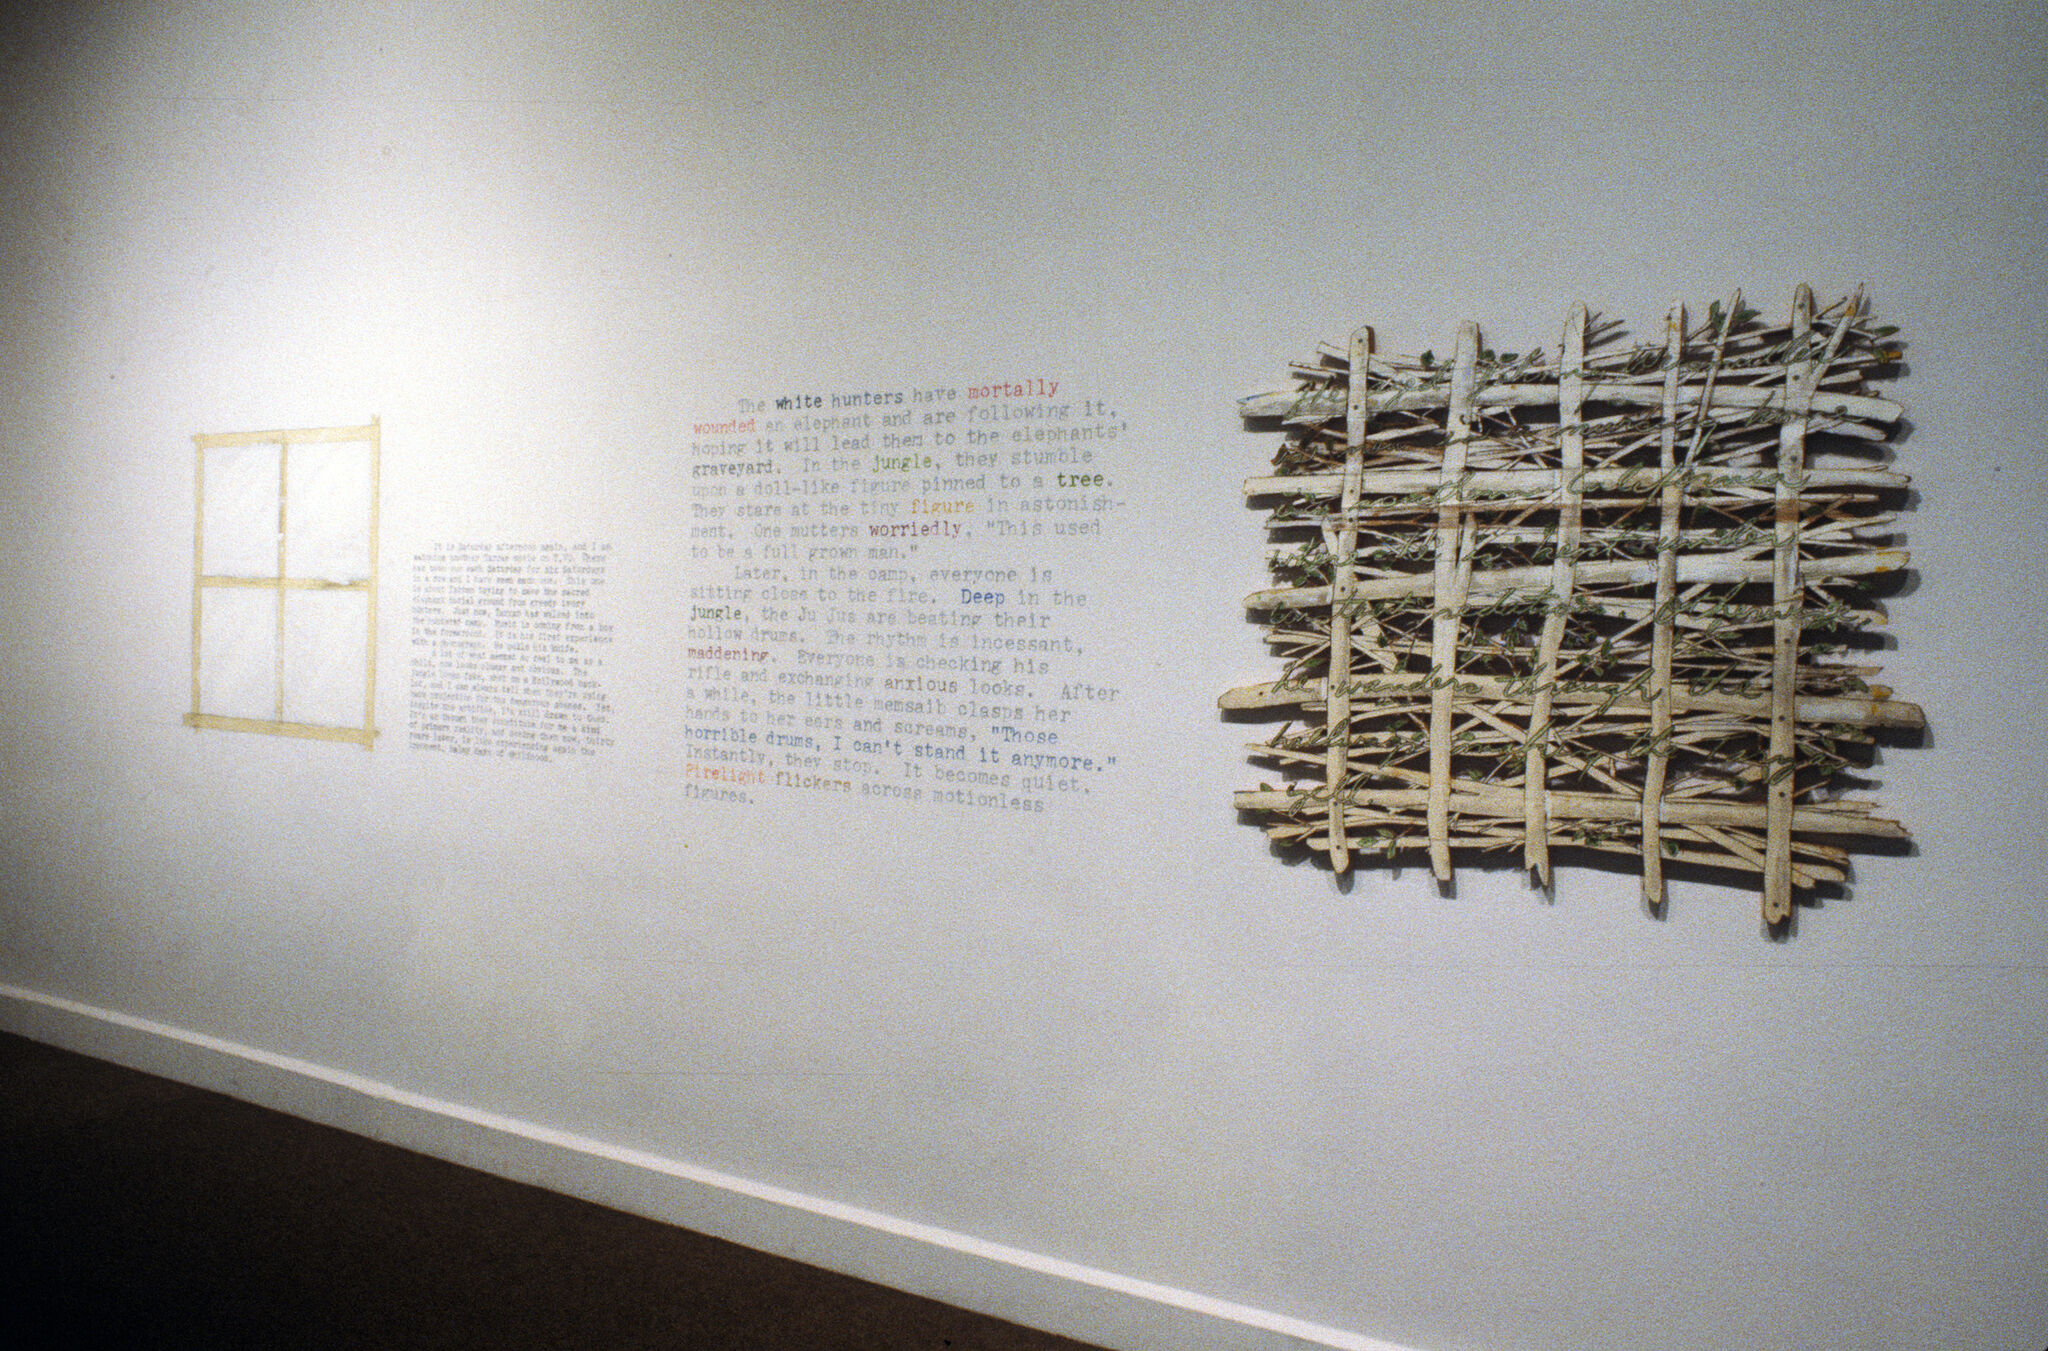 It is Saturday afternoon again, and I am
watching another Tarzan movie on T.V. There
has been one each Saturday for six Saturdays
in a row and I have seen each one. This one
is about Tarzan trying to save the sacred
elephant burial ground from greedy ivory
hunters. Just now, Tarzan has walked into
the hunters camp. Music is coming from a box
in the foreground. It is his first experience
with a phonograph. He pulls his knife.
A lot of what seemed so real to me as a
child, now looks clumsy and obvious. The
jungle looks fake, shot on a Hollywood back-
lot, and I can always tell when they're using
rear projection for the dangerous scenes. Yet,
despite the artifice, I'm still drawn to them.
It's as though they constitute for me a kind
of primary reality, and seeing them now, thirty
years later, is like experiencing again the
innocent, balmy days of childhood.
The white hunters have mortally
wounded an elephant and are following it,
hoping it will lead them to the elephants'
graveyard. In the jungle, they stumble
upon a doll-like figure pinned to a tree.
They stare at the tiny figure in astonish-
ment. One mutters worriedly, "This used
to be a full grown man."
Later, in the camp, everyone is
sitting close to the fire. Deep in the
jungle, the Ju Jus are beating their
hollow drums. The rhythm is incessant,
maddening. Everyone is checking his
rifle and exchanging anxious looks. After
a while, the little memsaib clasps her
hands to her ears and screams, "Those
horrible drums, I can't stand it anymore."
Instantly, they stop. It becomes quiet.
Firelight flickers across motionless
figures.
Weissmuller
in a nursing home
in southern California
where he is kept under
sedation. Otherwise,
he wanders through the
yell